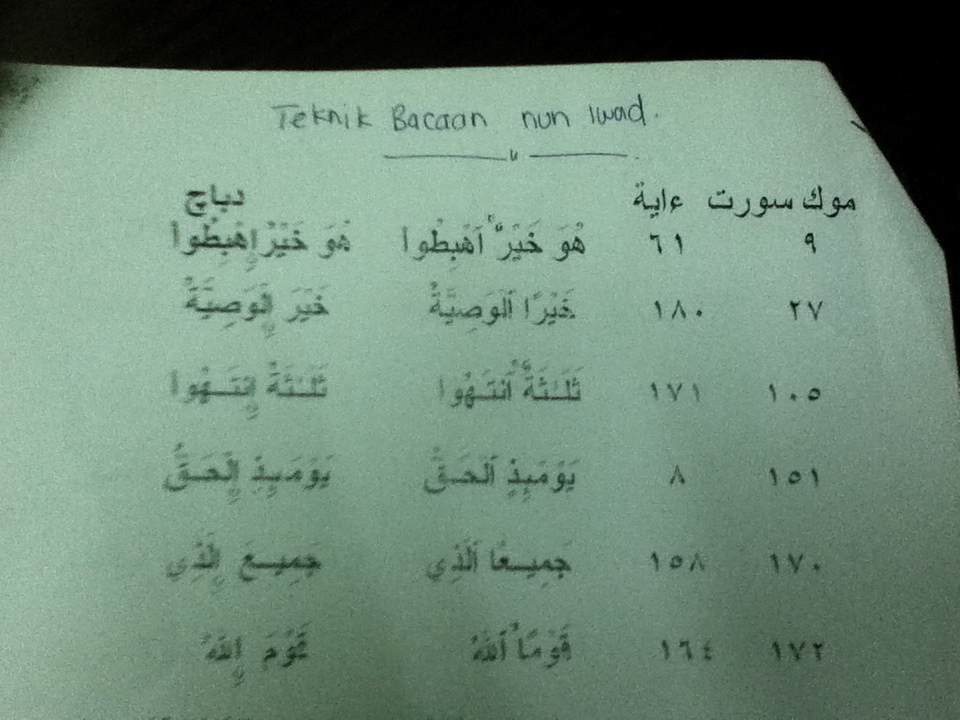 Teknik Bacaan nun Iwad.
موك سورت ءاية دباچ
٩ ٦١ هُوَ خَيْرٌ ٱهْبِطُوا هُوَ خَيْرُ إِهْبِطُوا
٢٧ ١٨٠ خَيْرًا ٱلْوَصِيَّةُ خَيْرَ لْوَصِيَّةُ
١٠٥ ١٧١ ثَلَـٰثَةٌ ٱنتَـهُوا ثَلَـٰثَةُ إِنتَـهُوا
١٥١ ٨ يَوْمَئِذٍ ٱلْحَقُّ يَوْمَئِذِ إِلْحَقُّ
١٧٠ ١٥٨ جَمِيـعًا ٱلَّذِي جَمِيـعَ لَّذِي
١٧٢ ١٦٤ قَوْمًا ٱللهُ قَوْمَ إِللهُ